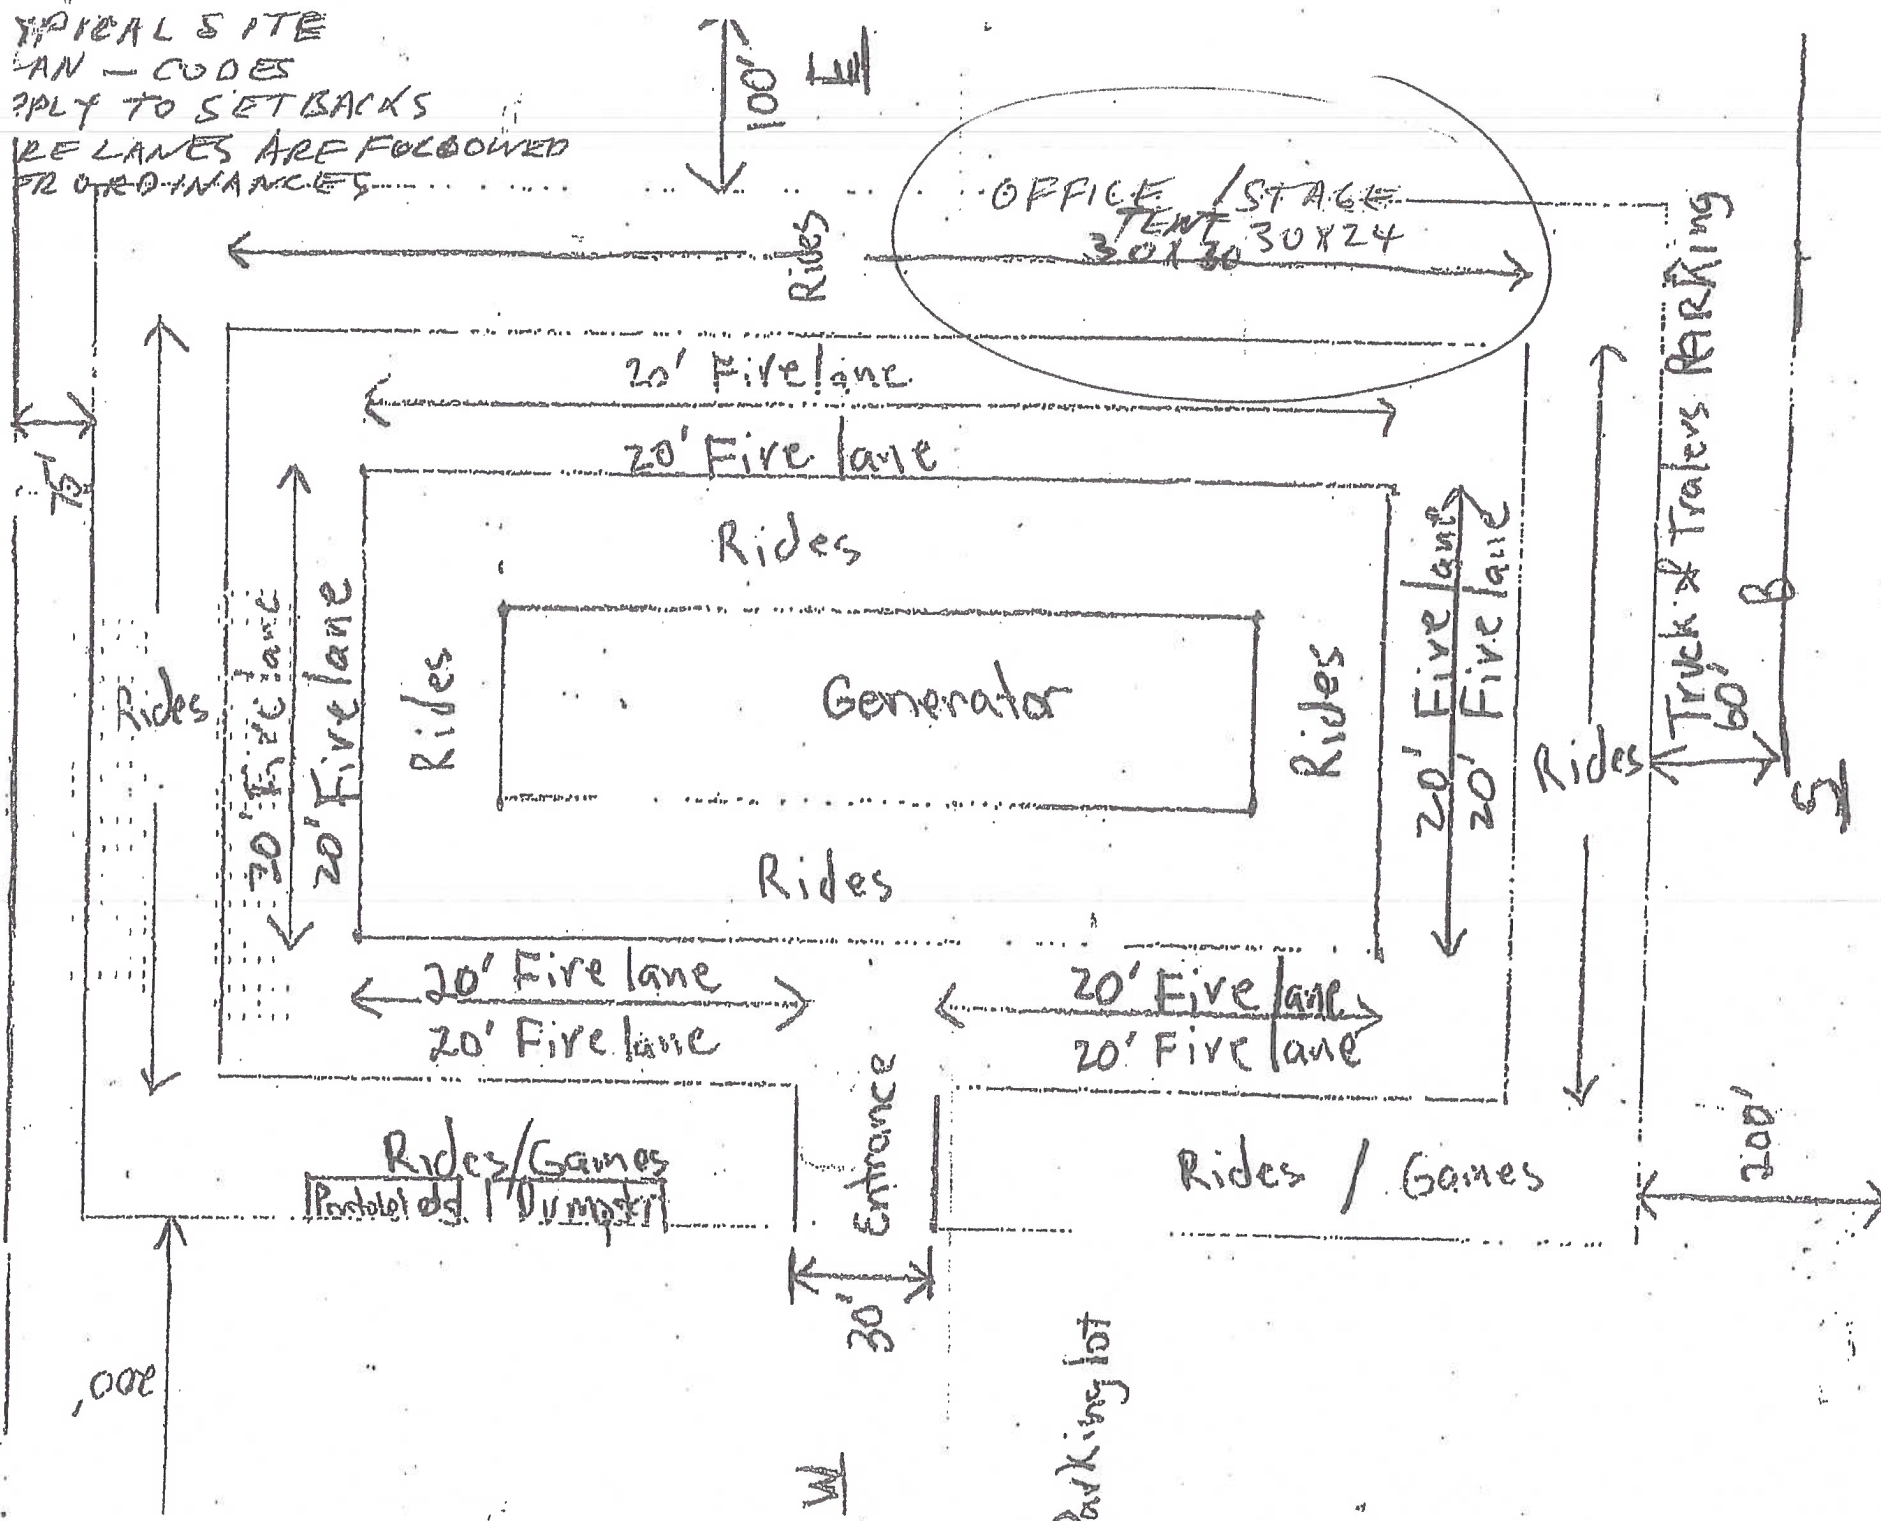 YPICAL SITE
AN — CODES
PPLY TO SETBACKS
RE LANES ARE FOLLOWED
ER ORDINANCES
100'
E
OFFICE / STAGE
TENT
30X30 30X24
Rides
Truck & Tralers PARKING
20' Fire lane
20' Fire lane
75'
Rides
20' Fire lane
20' Fire lane
Rides
Rides
Generator
Rides
Rides
20' Fire lane
20' Fire lane
Rides
60'
B
S
20' Fire lane
20' Fire lane
20' Fire lane
20' Fire lane
Entrance
Rides/Games
Rides / Games
200'
30'
200'
W
Parking lot